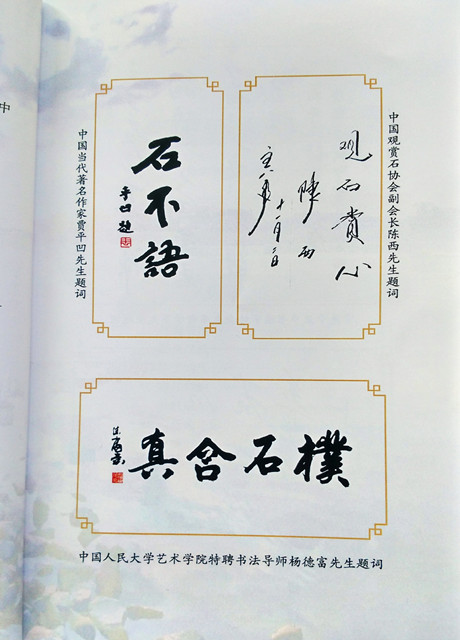 中
中国观赏石协会副会长陈西先生题词
观石賞心
陈西
十一月二日
石不語
平凹題
中国当代著名作家贾平凹先生题词
樸石含真
中国人民大学艺术学院特聘书法导师杨德富先生题词